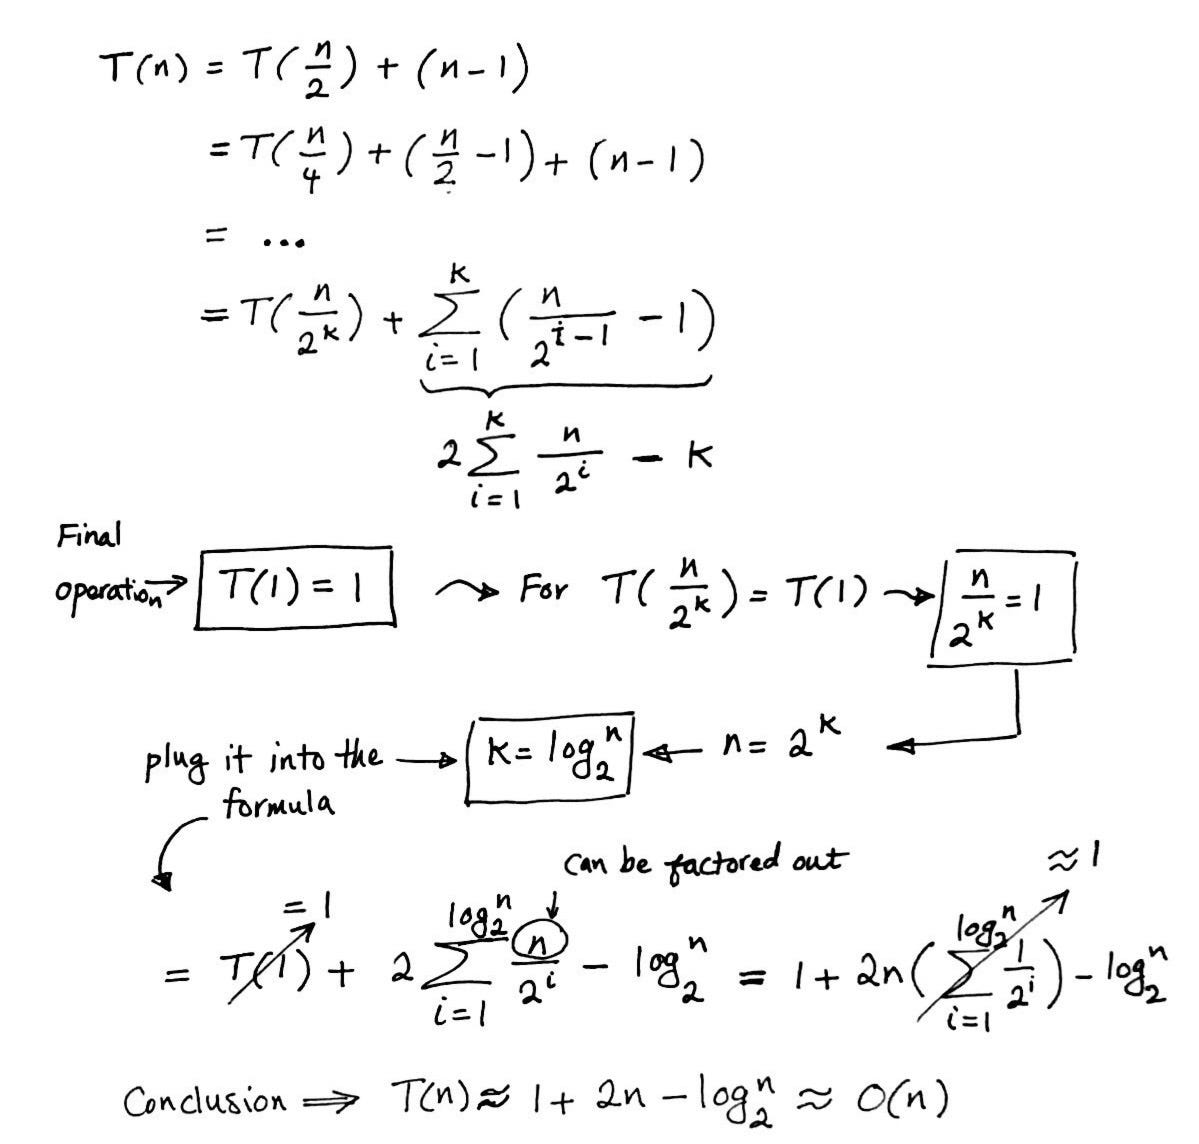 T(n) = T(n/2) + (n-1)
= T(n/4) + (n/2 -1) + (n-1)
= ...
= T(n/2^k) + ∑_{i=1}^{k} (n/2^{i-1} - 1)
2∑_{i=1}^{k} n/2^i - k
Final
operation → T(1) = 1 ⇝ For T(n/2^k) = T(1) ⇝ n/2^k = 1
plug it into the → k = log_2^n ← n = 2^k ←
formula
can be factored out ≈ 1
= 1
= T(1) + 2∑_{i=1}^{log_2^n} n/2^i - log_2^n = 1 + 2n(∑_{i=1}^{log_2^n} 1/2^i) - log_2^n
Conclusion ⇒ T(n) ≈ 1 + 2n - log_2^n ≈ O(n)